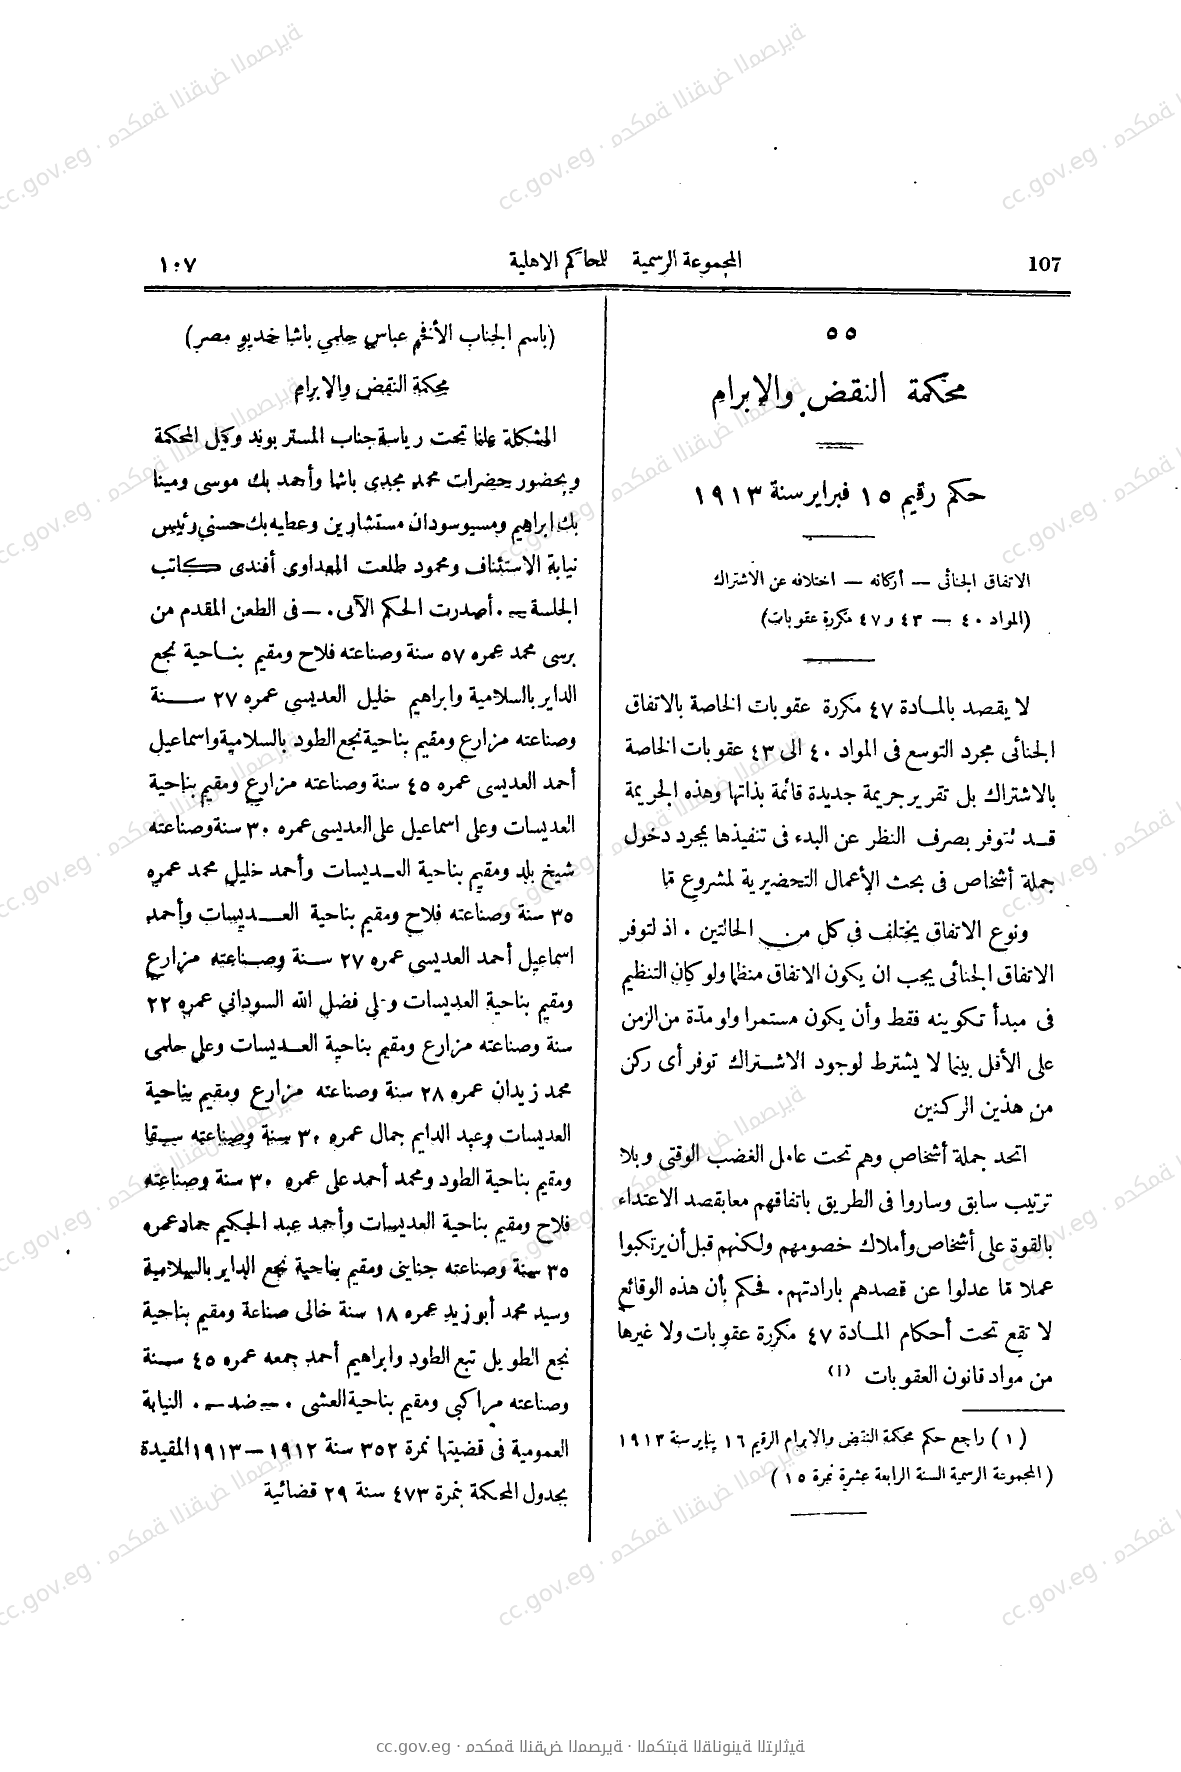 107
المجموعة الرسمية للمحاكم الاهلية
١٠٧
٥٥
محكمة النقض والإبرام
حكم رقيم ١٥ فبراير سنة ١٩١٣
الاتفاق الجنائى — أركانه — اختلافه عن الاشتراك
(المواد ٤٠ — ٤٣ و ٤٧ مكررة عقوبات)
لا يقصد بالمادة ٤٧ مكررة عقوبات الخاصة بالاتفاق
الجنائى مجرد التوسع فى المواد ٤٠ الى ٤٣ عقوبات الخاصة
بالاشتراك بل تقرير جريمة جديدة قائمة بذاتها وهذه الجريمة
قد تتوفر بصرف النظر عن البدء فى تنفيذها بمجرد دخول
جملة أشخاص فى بحث الأعمال التحضيرية لمشروع ما
ونوع الاتفاق يختلف فى كل من الحالتين . اذ لتوفر
الاتفاق الجنائى يجب ان يكون الاتفاق منظما ولو كان التنظيم
فى مبدأ تكوينه فقط وأن يكون مستمرا ولو مدّة من الزمن
على الأقل بينما لا يشترط لوجود الاشتراك توفر أى ركن
من هذين الركنين
اتحد جملة أشخاص وهم تحت عامل الغضب الوقتى وبلا
ترتيب سابق وساروا فى الطريق باتفاقهم معا بقصد الاعتداء
بالقوة على أشخاص وأملاك خصومهم ولكنهم قبل أن يرتكبوا
عملا ما عدلوا عن قصدهم بارادتهم. فحكم بأن هذه الوقائع
لا تقع تحت أحكام المادة ٤٧ مكررة عقوبات ولا غيرها
من مواد قانون العقوبات (١)
(١) راجع حكم محكمة النقض والابرام الرقيم ١٦ يناير سنة ١٩١٣
(المجموعة الرسمية السنة الرابعة عشرة نمرة ١٥)
(باسم الجناب الأفخم عباس حلمي باشا خديو مصر)
محكمة النقض والابرام
المشكلة علنا تحت رياسة جناب المستر بوند وكيل المحكمة
وبحضور حضرات محمد مجدى باشا وأحمد بك موسى ومينا
بك ابراهيم ومسيو سودان مستشارين وعطيه بك حسني رئيس
نيابة الاستئناف ومحمود طلعت المعداوى أفندى كاتب
الجلسة — . أصدرت الحكم الآتى . — فى الطعن المقدم من
برسى محمد عمره ٥٧ سنة وصناعته فلاح ومقيم بناحية نجع
الداير بالسلامية وابراهيم خليل العديسي عمره ٢٧ سنة
وصناعته مزارع ومقيم بناحية نجع الطود بالسلامية واسماعيل
أحمد العديسى عمره ٤٥ سنة وصناعته مزارع ومقيم بناحية
العديسات وعلى اسماعيل على العديسى عمره ٣٠ سنة وصناعته
شيخ بلد ومقيم بناحية العديسات وأحمد خليل محمد عمره
٣٥ سنة وصناعته فلاح ومقيم بناحية العديسات وأحمد
اسماعيل أحمد العديسى عمره ٢٧ سنة وصناعته مزارع
ومقيم بناحية العديسات وعلى فضل الله السوداني عمره ٢٢
سنة وصناعته مزارع ومقيم بناحية العديسات وعلى حلمى
محمد زيدان عمره ٢٨ سنة وصناعته مزارع ومقيم بناحية
العديسات وعبد الدايم جمال عمره ٣٠ سنة وصناعته سقا
ومقيم بناحية الطود ومحمد أحمد على عمره ٣٠ سنة وصناعته
فلاح ومقيم بناحية العديسات وأحمد عبد الحكيم حماد عمره
٣٥ سنة وصناعته جناينى ومقيم بناحية نجع الداير بالسلامية
وسيد محمد أبو زيد عمره ١٨ سنة خالى صناعة ومقيم بناحية
نجع الطويل تبع الطود وابراهيم أحمد جمعه عمره ٤٥ سنة
وصناعته مراكبى ومقيم بناحية العشى . — ضد — . النيابة
العمومية فى قضيتها نمرة ٣٥٢ سنة ١٩١٢ — ١٩١٣ المقيدة
بجدول المحكمة بنمرة ٤٧٣ سنة ٢٩ قضائية
cc.gov.eg · محكمة النقض المصرية · المكتبة القانونية التراثية